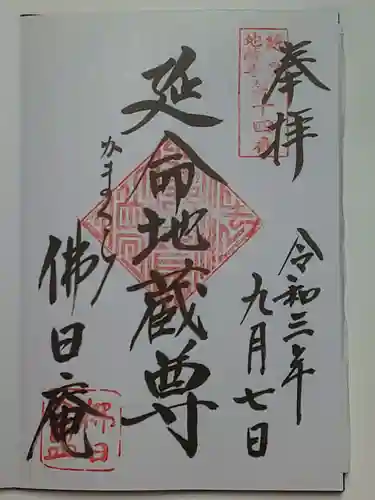 奉拝
令和三年
九月七日
延命地蔵尊
かまくら
佛日庵